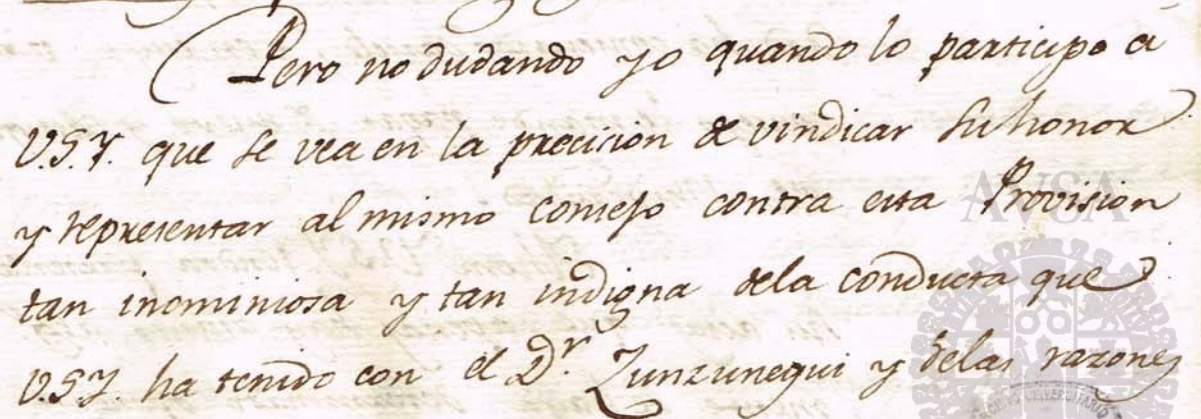 Pero no dudando yo quando lo participo a
V.S.Y. que se vea en la precision de vindicar su honor
y representar al mismo consejo contra esta Provision
tan inominiosa y tan indigna dela conducta que
V.S.Y. ha tenido con el D.r Zunzunegui y delas razones
AVSA